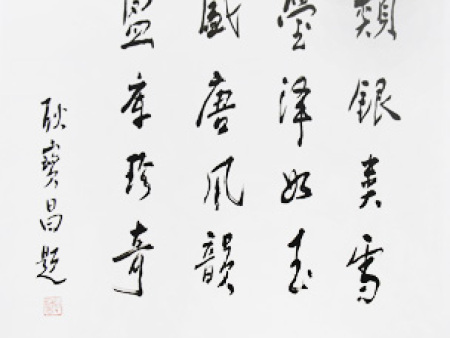 類銀类雪
瑩澤如玉
盛唐風韻
盈庫珍奇
耿寶昌題